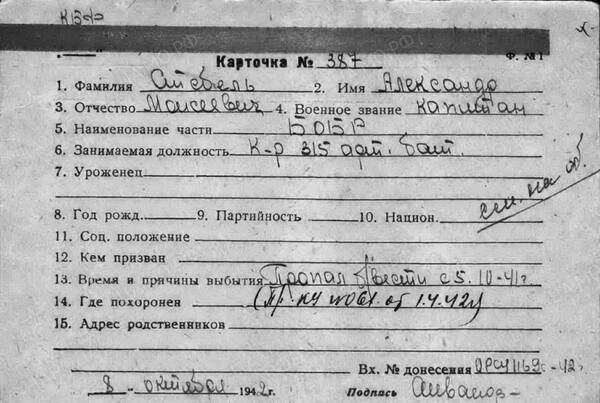 КБФ
Ф. №1
Карточка № 387
1. Фамилия Стебель 2. Имя Александр
3. Отчество Моисеевич 4. Военное звание капитан
5. Наименование части БОБР
6. Занимаемая должность К-р 315 арт. бат.
7. Уроженец см. на об.
8. Год рожд. 9. Партийность 10. Национ.
11. Соц. положение
12. Кем призван
13. Время и причины выбытия Пропал б/вести с 5.10-41г
14. Где похоронен (Пр. КУ №061 от 1.4.42г)
15. Адрес родственников
Вх. № донесения
8 октября 1942г. Подпись